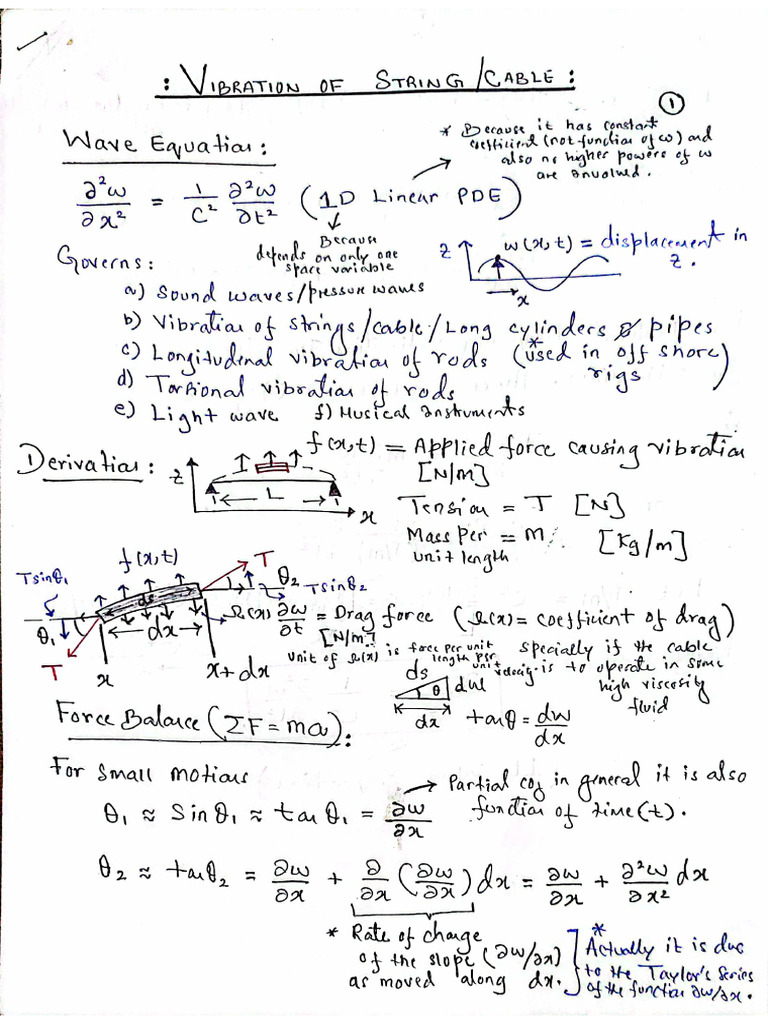 : VIBRATION OF STRING/CABLE :
①
Wave Equation:
* Because it has constant
coefficient (not function of ω) and
also no higher powers of ω
are involved.
∂²ω/∂x² = 1/C² ∂²ω/∂t² (1D Linear PDE)
Because
depends on only one
space variable
z ω(x,t) = displacement in
z.
x
Governs:
a) Sound waves/pressure waves
b) Vibration of strings/cable/Long cylinders & pipes
c) Longitudenal vibration of rods (*used in off shore
rigs)
d) Torsional vibration of rods
e) Light wave f) Musical instruments
1) Derivation:
z L x
f(x,t) = Applied force causing vibration
[N/m]
Tension = T [N]
Mass Per
unit length = m [Kg/m]
f(x,t) T
Tsinθ₁ θ₂ Tsinθ₂
ds
θ₁ dx
T x x+dx
Ω(x) ∂ω/∂t = Drag force (Ω(x) = coefficient of drag)
[N/m]
unit of Ω(x) is force per unit
length per
unit
velocity
specially if the cable
is to operate in some
high viscosity
fluid
ds dw
θ
dx tanθ = dw/dx
Force Balance (ΣF = ma):
For small motions
→ Partial coz in general it is also
function of time(t).
θ₁ ≈ Sinθ₁ ≈ tanθ₁ = ∂ω/∂x
θ₂ ≈ tanθ₂ = ∂ω/∂x + ∂/∂x (∂ω/∂x) dx = ∂ω/∂x + ∂²ω/∂x² dx
* Rate of change
of the slope (∂ω/∂x)
as moved along dx.
* Actually it is due
to the Taylor's Series
of the function ∂ω/∂x.